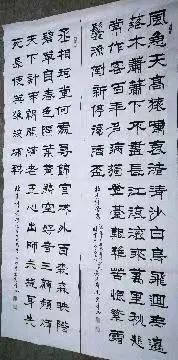 風急天高猿嘯哀渚清沙白鳥飛迴無邊
落木蕭蕭下不盡長江滾滾來萬里悲秋
常作客百年多病獨登臺艱難苦恨繁霜
鬢潦倒新停濁酒杯
丞相祠堂何處尋錦官城外柏森森映階
碧草自春色隔葉黃鸝空好音三顧頻煩
天下計兩朝開濟老臣心出師未捷身先
死長使英雄淚滿襟